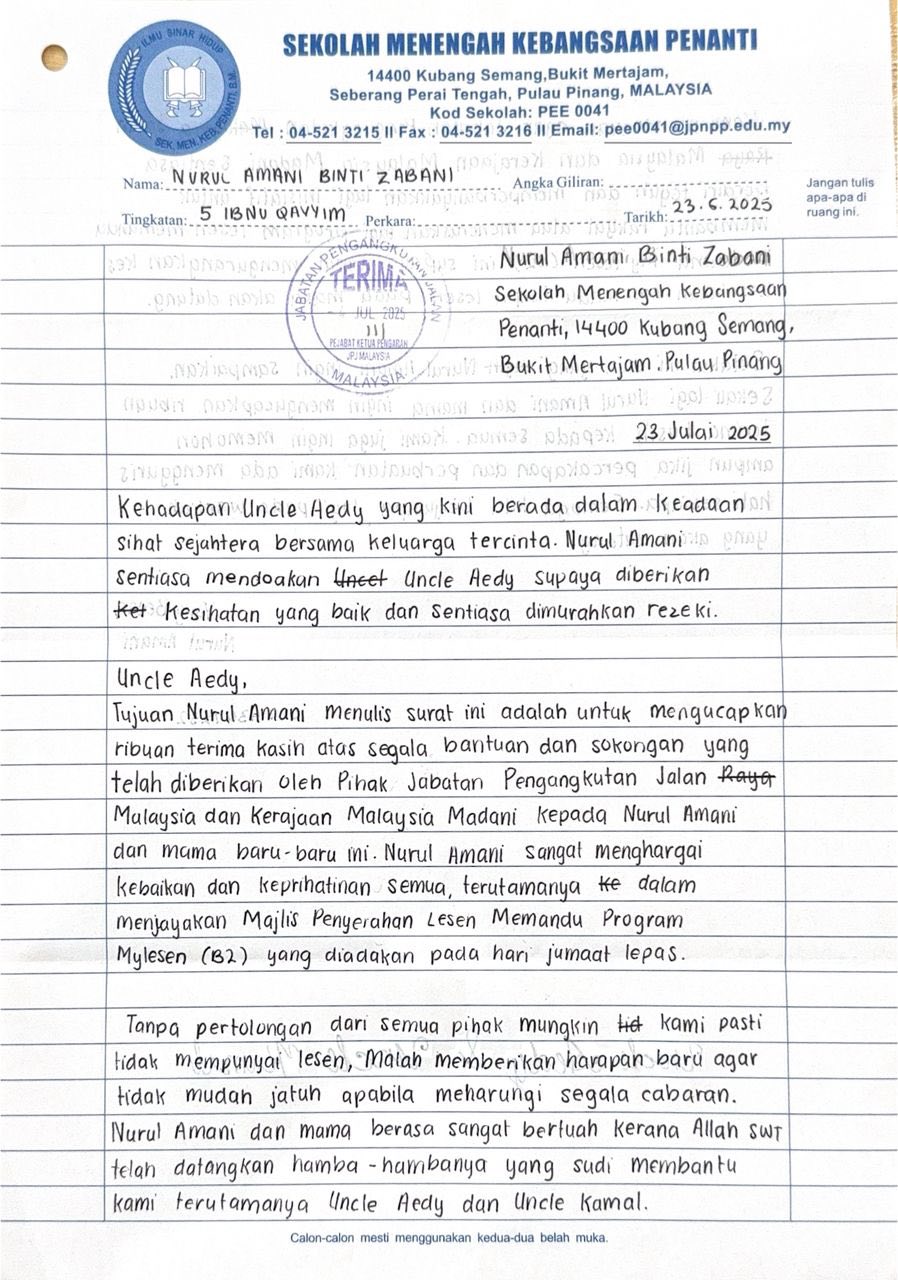 ILMU SINAR HIDUP
SEK. MEN. KEB. PENANTI, B.M.
SEKOLAH MENENGAH KEBANGSAAN PENANTI
14400 Kubang Semang,Bukit Mertajam,
Seberang Perai Tengah, Pulau Pinang, MALAYSIA
Kod Sekolah: PEE 0041
Tel : 04-521 3215 II Fax : 04-521 3216 II Email: pee0041@jpnpp.edu.my
Nama: NURUL AMANI BINTI ZABANI Angka Giliran:
Tingkatan: 5 IBNU QAYYIM Perkara: Tarikh: 23.6.2025
Jangan tulis
apa-apa di
ruang ini.
JABATAN PENGANGKUTAN JALAN
TERIMA
JUL 2025
PEJABAT KETUA PENGARAH
JPJ MALAYSIA
MALAYSIA
Nurul Amani Binti Zabani
Sekolah Menengah Kebangsaan
Penanti, 14400 Kubang Semang,
Bukit Mertajam. Pulau Pinang
23 Julai 2025
Kehadapan Uncle Aedy yang kini berada dalam keadaan
sihat sejahtera bersama keluarga tercinta. Nurul Amani
sentiasa mendoakan Uncel Uncle Aedy supaya diberikan
Ket kesihatan yang baik dan sentiasa dimurahkan rezeki.
Uncle Aedy,
Tujuan Nurul Amani menulis surat ini adalah untuk mengucapkan
ribuan terima kasih atas segala bantuan dan sokongan yang
telah diberikan oleh Pihak Jabatan Pengangkutan Jalan Raya
Malaysia dan Kerajaan Malaysia Madani kepada Nurul Amani
dan mama baru-baru ini. Nurul Amani sangat menghargai
kebaikan dan keprihatinan semua, terutamanya ke dalam
menjayakan Majlis Penyerahan Lesen Memandu Program
Mylesen (B2) yang diadakan pada hari jumaat lepas.
Tanpa pertolongan dari semua pihak mungkin tid kami pasti
tidak mempunyai lesen, Malah memberikan harapan baru agar
tidak mudah jatuh apabila meharungi segala cabaran.
Nurul Amani dan mama berasa sangat bertuah kerana Allah SWT
telah datangkan hamba-hambanya yang sudi membantu
kami terutamanya Uncle Aedy dan Uncle Kamal.
Calon-calon mesti menggunakan kedua-dua belah muka.